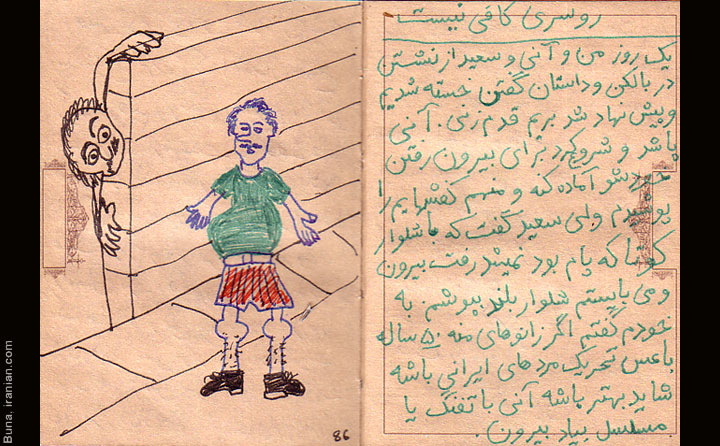 روسری کافی نیست
یک روز من و آنی و سعید از نشستن
در بالکن و داستان گفتن خسته شدیم
و پیش نهاد شد بریم قدم زنی. آنی
پا شد و شرو کرد برای بیرون رفتن
خودشو آماده کنه و منهم کفشهایم را
پوشیدم ولی سعید گفت که با شلوار
کوتا که پام بود نمیشد رفت بیرون
و می بایستم شلوار بلند بپوشم. به
خودم گفتم اگر زانوهای منه ۵۰ ساله
باعس تحریک مردهای ایرانی باشه
شاید بهتر باشه آنی با تفنگ یا
مسلسل بیاد بیرون.
86
Buna, iranian.com